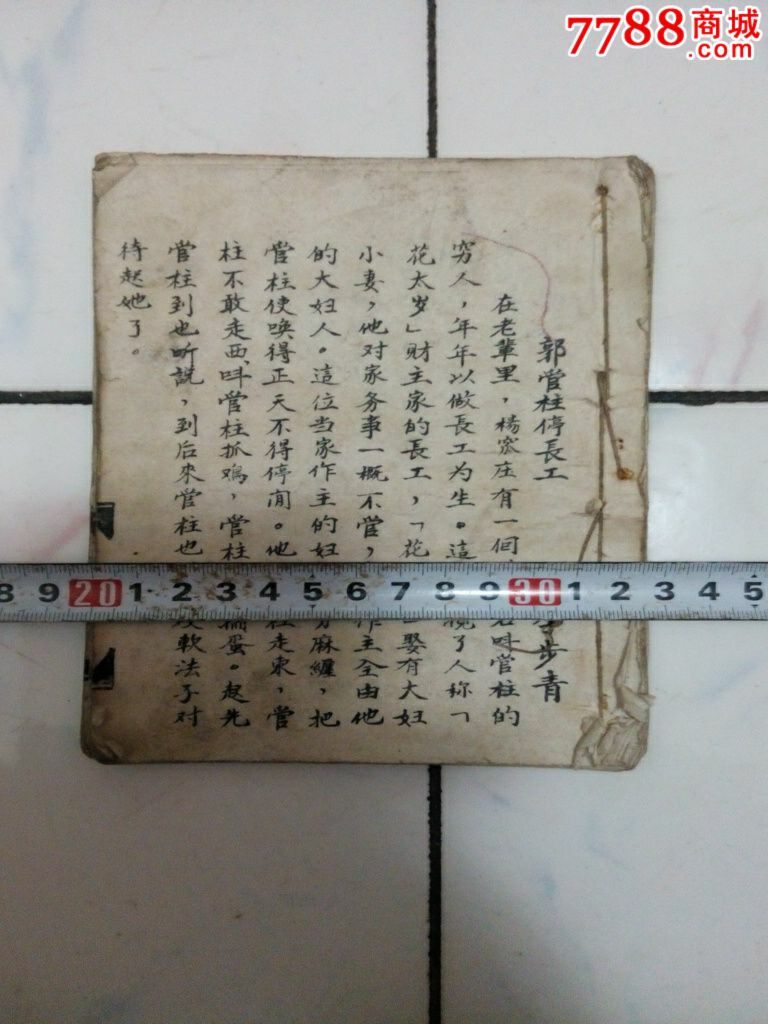 7788商城
.com
郭管柱停長工
步青
在老辈里，楊宻庄有一囘 名叫管柱的
穷人，年年以做長工为生。這 揽了人称「
花太岁」財主家的長工，「花 娶有大妇
小妻，他对家务事一概不管， 作主全由他
的大妇人。這位当家作主的妇 麻缠，把
管柱使唤得正天不得停闲。他 走東，管
柱不敢走西、叫管柱抓鸡，管柱 蛋。起先
管柱到也听説，到后來管柱也 软法子对
待起她了。
8 9 20 1 2 3 4 5 6 7 8 9 30 1 2 3 4 5